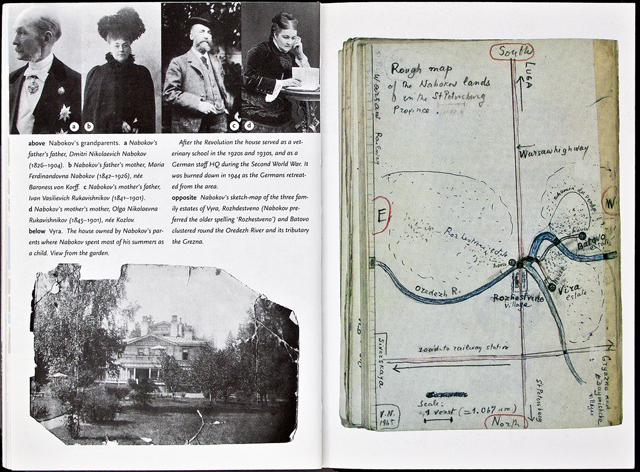 a b c d
above Nabokov's grandparents. a Nabokov's
father's father, Dmitri Nikolaevich Nabokov
(1826–1904). b Nabokov's father's mother, Maria
Ferdinandovna Nabokov (1842–1926), née
Baroness von Korff. c Nabokov's mother's father,
Ivan Vasilievich Rukavishnikov (1841–1901).
d Nabokov's mother's mother, Olga Nikolaevna
Rukavishnikov (1845–1901), née Kozlov.
below Vyra. The house owned by Nabokov's par-
ents where Nabokov spent most of his summers as
a child. View from the garden.
After the Revolution the house served as a vet-
erinary school in the 1920s and 1930s, and as a
German staff HQ during the Second World War. It
was burned down in 1944 as the Germans retreat-
ed from the area.
opposite Nabokov's sketch-map of the three fam-
ily estates of Vyra, Rozhdestveno (Nabokov pre-
ferred the older spelling 'Rozhestveno') and Batovo
clustered round the Oredezh River and its tributary
the Grezna.
South
LUGA
Warsaw Railway
Rough map
of the Nabokov lands
in the St Petersburg
Province.
Warsaw highway
E
W
Rozhestveno estate
Batovo
estate
Oredezh R.
Rozhestveno
village
Vira
estate
road to railway station
Siverskaya
Gryazno and
villages
St Petersburg
Scale:
1 verst (=1.067 km)
V.N.
1965
North